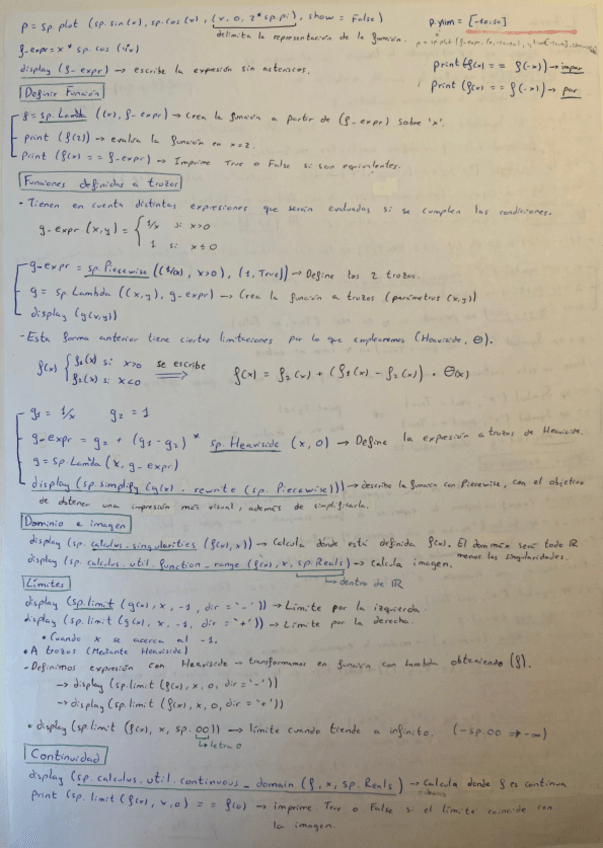 p = sp.plot (sp.sin(x), sp.cos(x), (x, 0, 2*sp.pi), show = False)
delimita la representación de la función.
p.ylim = [-10,10]
f-expr = x * sp.cos
display (f-expr) → escribe la expresión sin asteriscos.
print (f(x) == f(-x)) → impar
print (f(x) == f(-x)) → par
Definir Función
f = sp.Lambda ((x), f-expr) → Crea la función a partir de (f-expr) sobre 'x'.
print (f(2)) → evalúa la función en x=2.
print (f(x) == f-expr) → Imprime True o False si son equivalentes.
Funciones definidas a trozos
• Tienen en cuenta distintas expresiones que serán evaluadas si se cumplen las condiciones.
g-expr (x,y) = { 1/x si x>0
1 si x≤0
g-expr = sp.Piecewise ((1/x), x>0), (1, True)) → Define los 2 trozos.
g = sp.Lambda ((x,y), g-expr) → Crea la función a trozos (parámetros (x,y))
display (g(x,y))
- Esta forma anterior tiene ciertas limitaciones por lo que emplearemos (Heaviside, Θ).
f(x) { f1(x) si x>0 se escribe ⟹ f(x) = f2(x) + (f1(x) - f2(x)) · Θ(x)
f2(x) si x<0
g1 = 1/x g2 = 1
g-expr = g2 + (g1-g2) * sp.Heaviside (x,0) → Define la expresión a trozos de Heaviside.
g = sp.Lambda (x, g-expr)
display (sp.simplify (g(x).rewrite (sp.Piecewise))) → describe la función con Piecewise, con el objetivo
de obtener una impresión más visual, además de simplificarla.
Dominio e imagen
display (sp.calculus.singularities (f(x), x)) → Calcula dónde está definida f(x). El dominio será todo ℝ
menos las singularidades.
display (sp.calculus.util.function_range (f(x), x, sp.Reals) → Calcula imagen.
↳ dentro de ℝ
Límites
display (sp.limit (g(x), x, -1, dir = '-')) → Límite por la izquierda.
display (sp.limit (g(x), x, -1, dir = '+')) → Límite por la derecha.
• Cuando x se acerca al -1.
• A trozos (Mediante Heaviside)
- Definimos expresión con Heaviside → transformamos en función con lambda obteniendo (f).
→ display (sp.limit (f(x), x, 0, dir = '-'))
→ display (sp.limit (f(x), x, 0, dir = '+'))
• display (sp.limit (f(x), x, sp.oo)) → límite cuando tiende a infinito. (-sp.oo → -∞)
↳ letra o
Continuidad
display (sp.calculus.util.continuous_domain (f, x, sp.Reals) → Calcula donde f es continua
print (sp.limit (f(x), x, 0) == f(0) → imprime True o False si el límite coincide con
la imagen.